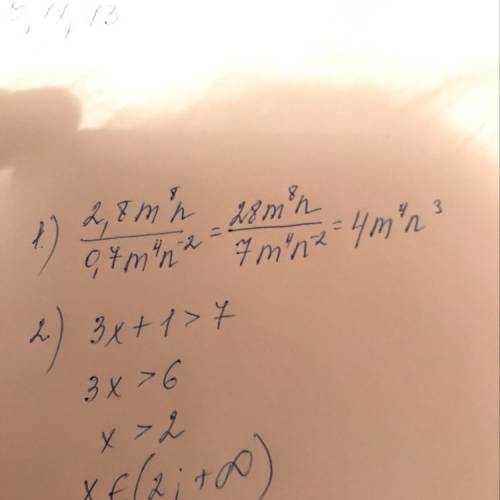 1.) 2,8m⁸n / 0,7m⁴n⁻² = 28m⁸n / 7m⁴n⁻² = 4m⁴n³
2.) 3x + 1 > 7
3x > 6
x > 2
x ∈ (2; +∞)